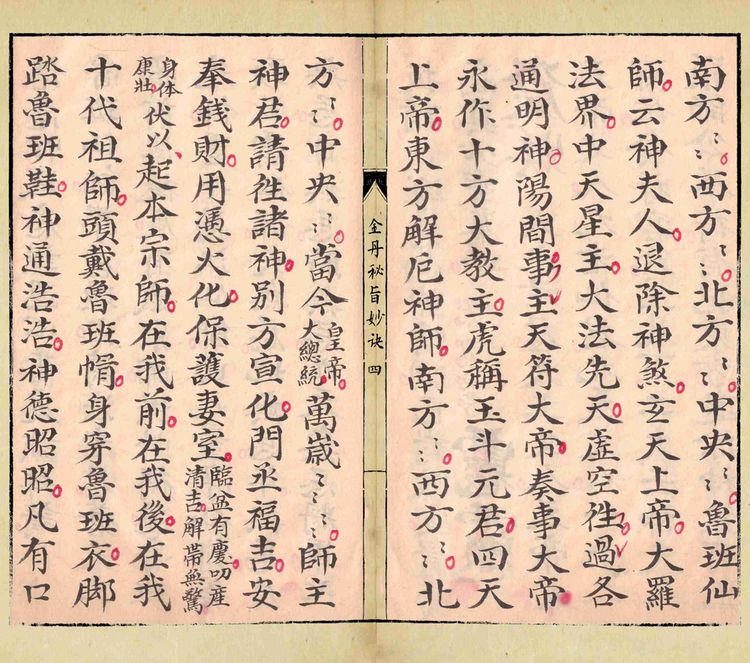 南方〻〻西方〻〻北方〻〻中央〻〻魯班仙
師云神夫人退除神煞玄天上帝大羅
法界中天星主大法先天虛空徃過各
通明神陽間事主天符大帝奏事大帝
永作十方大教主虎稱玉斗元君四天
上帝東方解厄神師南方〻〻西方〻〻北
全丹祕旨妙诀 四
方〻〻中央〻〻當今皇帝大總統萬歲〻〻〻〻師主
神君請徃諸神別方宣化門丞福吉安
奉錢財用憑火化保護妻室臨盆有慶叨產清吉解帶無驚
身体康壯伏以起本宗師在我前在我後在我
十代祖師頭戴魯班帽身穿魯班衣脚
踏魯班鞋神通浩浩神德昭昭凡有口